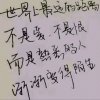 世界上最遥远的距离
不是爱，不是恨
而是熟悉的人
渐渐变得陌生